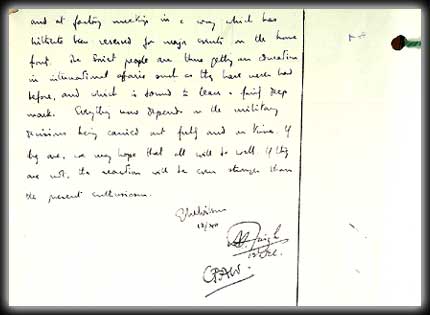 and at factory meetings in a way which has
hitherto been reserved for major events on the home
front. The Soviet people are thus getting an education
in international affairs such as they have never had
before, and which is bound to leave a fairly deep
mark. Everything now depends on the military
decisions being carried out fully and in time. If
they are, we may hope that all will go well. If they
are not, the reaction will be even stronger than
the present enthusiasm.